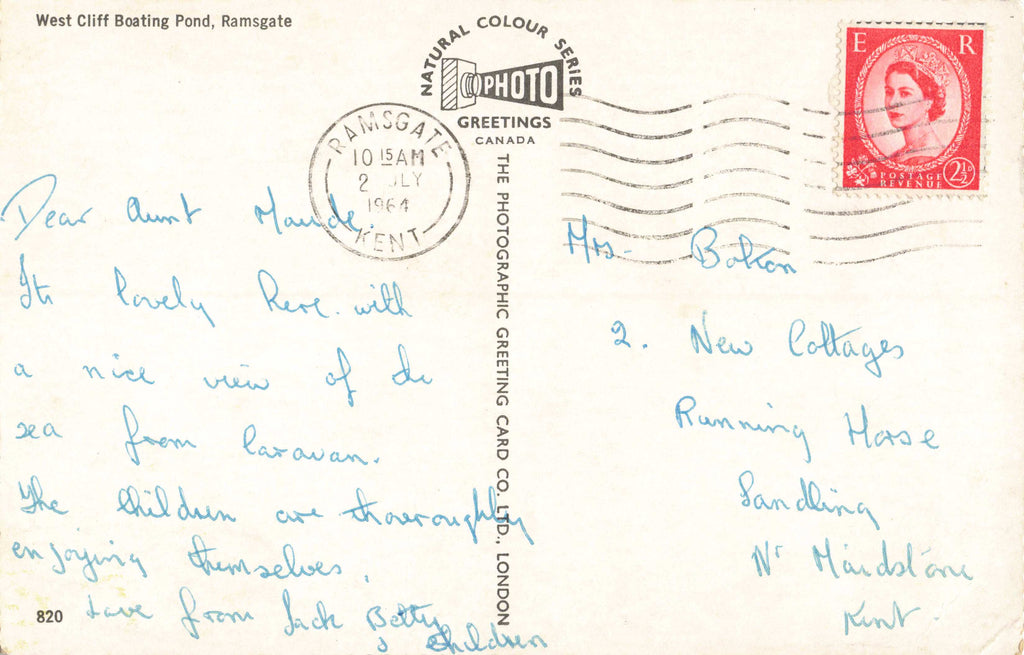 West Cliff Boating Pond, Ramsgate
NATURAL COLOUR SERIES
PHOTO
GREETINGS
CANADA
E R
POSTAGE
REVENUE
2½D
RAMSGATE
10 15 AM
2 JLY
1964
KENT
THE PHOTOGRAPHIC GREETING CARD CO. LTD., LONDON
Dear Aunt Maude.
Its lovely here. with
a nice view of the
sea from Caravan.
The Children are thoeroughly
enjoying themselves,
Love from Jack Betty
& Children
820
Mrs- Bolton
2. New Cottages
Running Horse
Sandling
Nr Maidstone
Kent.